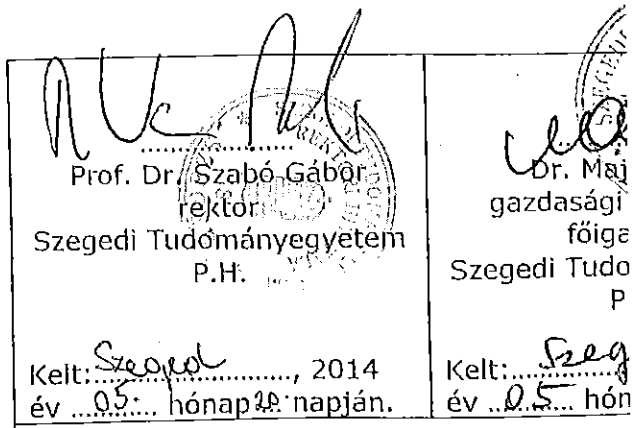 Prof. Dr. Szabó Gábor
rektor
Szegedi Tudományegyetem
P.H.
Kelt: Szeged, 2014
év 05. hónap 20. napján.
Dr. Maj
gazdasági
főiga
Szegedi Tudo
P
Kelt: Szeg
év 05 hón